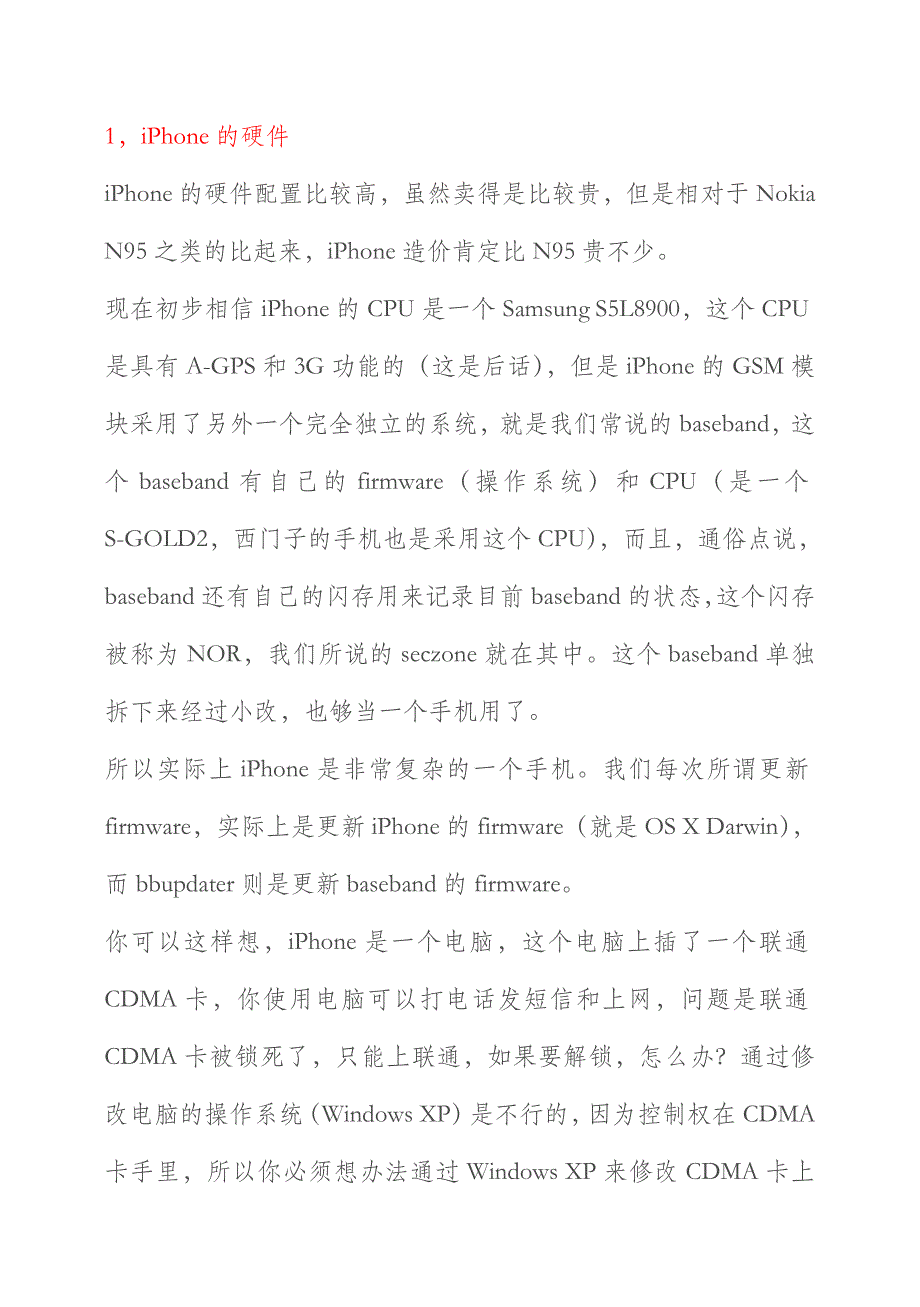 1，iPhone 的硬件
iPhone 的硬件配置比较高，虽然卖得是比较贵，但是相对于 Nokia
N95 之类的比起来，iPhone 造价肯定比 N95 贵不少。
现在初步相信 iPhone 的 CPU 是一个 Samsung S5L8900，这个 CPU
是具有 A-GPS 和 3G 功能的（这是后话），但是 iPhone 的 GSM 模
块采用了另外一个完全独立的系统，就是我们常说的 baseband，这
个 baseband 有自己的 firmware（操作系统）和 CPU（是一个
S-GOLD2，西门子的手机也是采用这个 CPU），而且，通俗点说，
baseband 还有自己的闪存用来记录目前 baseband 的状态，这个闪存
被称为 NOR，我们所说的 seczone 就在其中。这个 baseband 单独
拆下来经过小改，也够当一个手机用了。
所以实际上 iPhone 是非常复杂的一个手机。我们每次所谓更新
firmware，实际上是更新 iPhone 的 firmware（就是 OS X Darwin），
而 bbupdater 则是更新 baseband 的 firmware。
你可以这样想，iPhone 是一个电脑，这个电脑上插了一个联通
CDMA 卡，你使用电脑可以打电话发短信和上网，问题是联通
CDMA 卡被锁死了，只能上联通，如果要解锁，怎么办？通过修
改电脑的操作系统（Windows XP）是不行的，因为控制权在 CDMA
卡手里，所以你必须想办法通过 Windows XP 来修改 CDMA 卡上